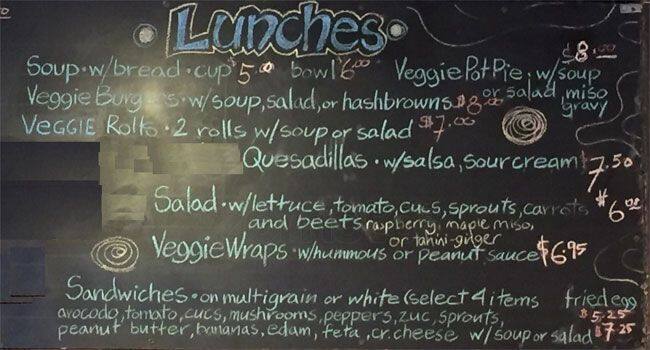 Lunches
Soup • w/bread • cup $5.00 bowl 6.00
$8.00
Veggie Pot Pie w/soup
or salad, miso
gravy
Veggie Burgers • w/soup, salad, or hashbrowns $8.00
VEGGIE Rolls • 2 rolls w/soup or salad $7.00
Quesadillas • w/salsa, sour cream $7.50
Salad • w/lettuce, tomato, cucs, sprouts, carrots $6.00
and beets raspberry, maple miso,
or tahini-ginger
Veggie Wraps • w/hummous or peanut sauce $6.95
Sandwiches • on multigrain or white (select 4 items fried egg
avocodo, tomato, cucs, mushrooms, peppers, zuc, sprouts, $5.25
peanut butter, bananas, edam, feta, cr. cheese w/soup or salad $7.25